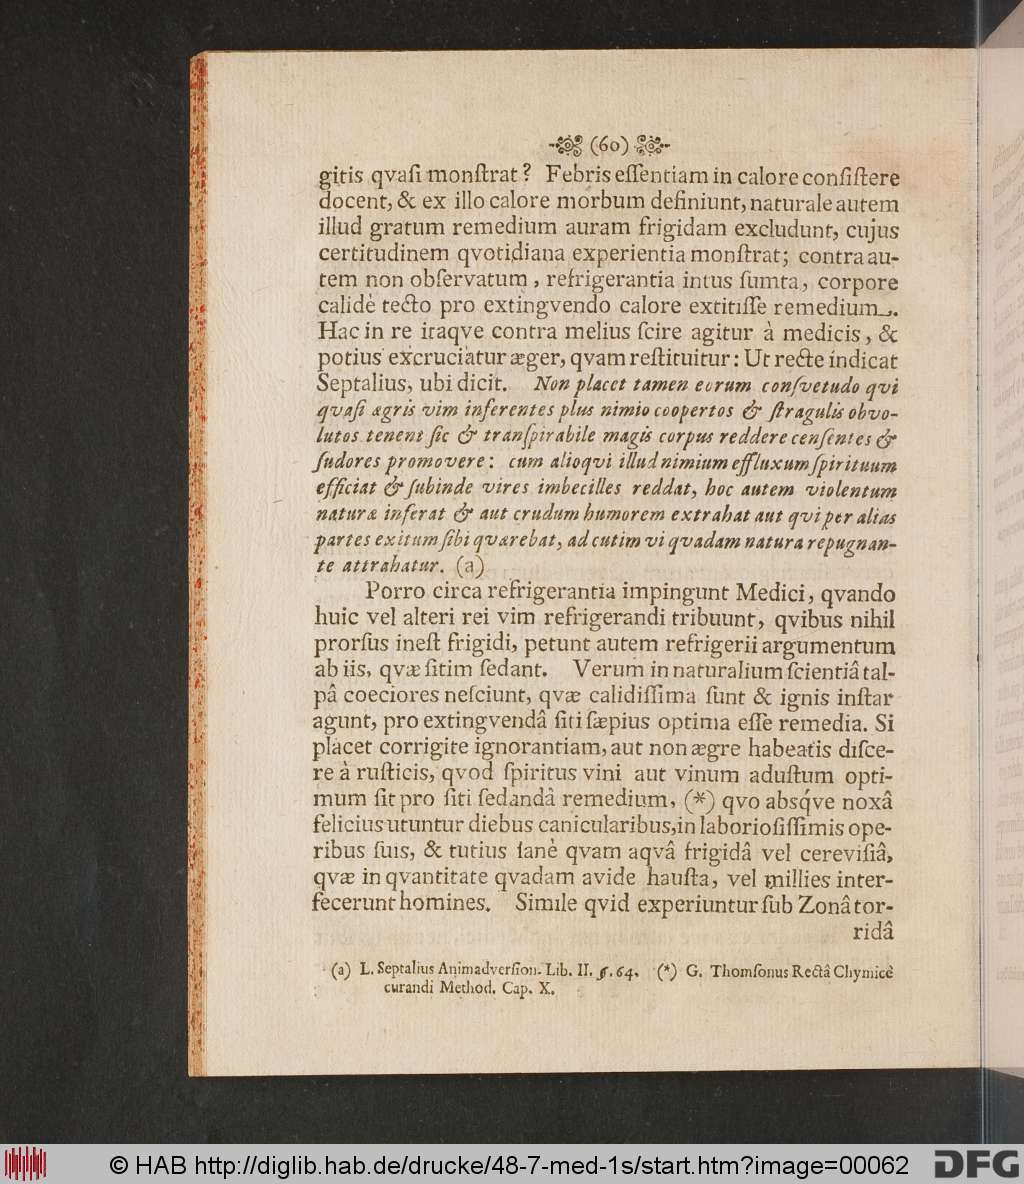 (60)
gitis qvaſi monſtrat? Febris eſſentiam in calore conſiſtere
docent, & ex illo calore morbum definiunt, naturale autem
illud gratum remedium auram frigidam excludunt, cujus
certitudinem qvotidiana experientia monſtrat; contra au-
tem non obſervatum, refrigerantia intus ſumta, corpore
calidè tecto pro extingvendo calore extitiſſe remedium.
Hac in re itaqve contra melius ſcire agitur à medicis, &
potius excruciatur æger, qvam reſtituitur: Ut recte indicat
Septalius, ubi dicit. Non placet tamen eorum conſvetudo qvi
qvaſi ægris vim inferentes plus nimio coopertos & ſtragulis obvo-
lutos tenent ſic & tranſpirabile magis corpus reddere cenſentes &
ſudores promovere: cum alioqvi illud nimium effluxum ſpirituum
efficiat & ſubinde vires imbecilles reddat, hoc autem violentum
naturæ inferat & aut crudum humorem extrahat aut qvi per alias
partes exitum ſibi qværebat, ad cutim vi qvadam natura repugnan-
te attrahatur. (a)
Porro circa refrigerantia impingunt Medici, qvando
huic vel alteri rei vim refrigerandi tribuunt, qvibus nihil
prorſus ineſt frigidi, petunt autem refrigerii argumentum
ab iis, qvæ ſitim ſedant. Verum in naturalium ſcientiâ tal-
pâ coeciores neſciunt, qvæ calidiſſima ſunt & ignis inſtar
agunt, pro extingvendâ ſiti ſæpius optima eſſe remedia. Si
placet corrigite ignorantiam, aut non ægre habeatis diſce-
re à ruſticis, qvod ſpiritus vini aut vinum aduſtum opti-
mum ſit pro ſiti ſedandâ remedium, (*) qvo absq́ve noxâ
felicius utuntur diebus canicularibus, in laborioſiſſimis ope-
ribus ſuis, & tutius ſanè qvam aqvâ frigidâ vel cereviſiâ,
qvæ in qvantitate qvadam avide hauſta, vel millies inter-
fecerunt homines. Simile qvid experiuntur ſub Zonâ tor-
ridâ
(a) L. Septalius Animadverſion. Lib. II. §. 64. (*) G. Thomſonus Rectâ Chymicè
curandi Method. Cap. X.
© HAB http://diglib.hab.de/drucke/48-7-med-1s/start.htm?image=00062
DFG